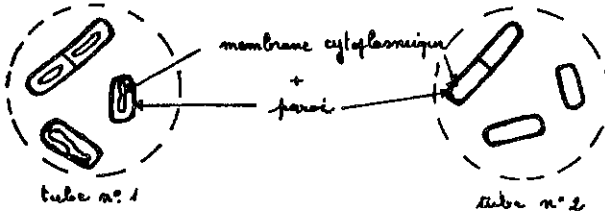 membrane cytoplasmique
+
paroi
tube n° 1
tube n° 2